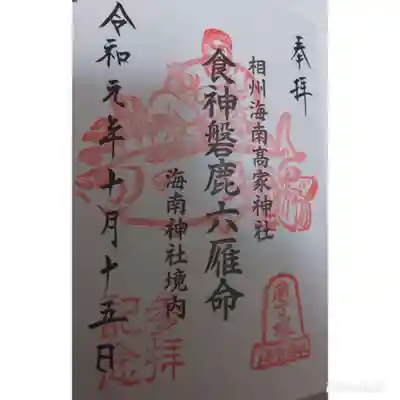 奉拝
相州海南高家神社
食神磐鹿六雁命
海南神社境内
令和元年十月十五日
参拝
記念